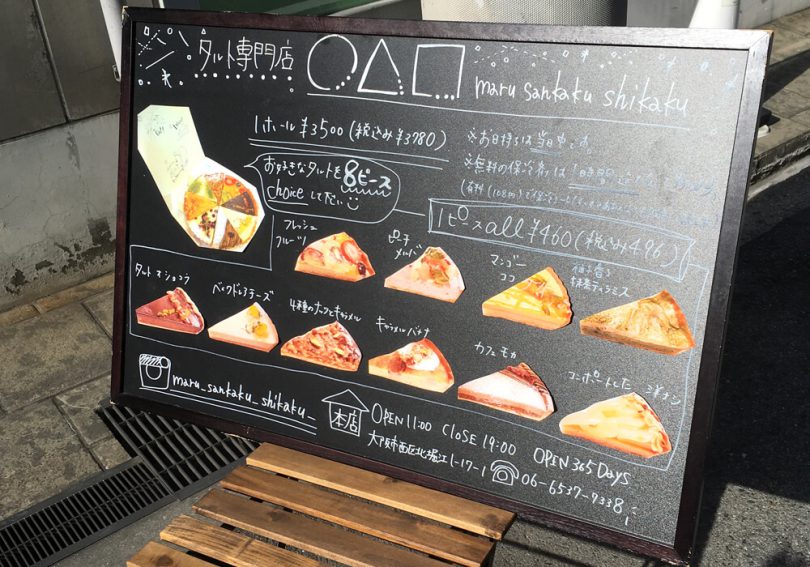 タルト専門店 ○△□ maru sankaku shikaku
1ホール ¥3500 (税込み¥3780)
※お日持ちは当日中です。
※無料の保冷剤は1時間
お好きなタルトを
8ピース
choice して下さい
1ピース all ¥460 (税込み496)
フレッシュ
フルーツ
ピーチ
メルバ
マンゴー
ココ
抹茶ティラミス
タルト オ ショコラ
ベイクドレアチーズ
4種のナッツとキャラメル
キャラメルバナナ
カフェモカ
コンポートした 洋ナシ
maru_sankaku_shikaku_
本店
OPEN 11:00 CLOSE 19:00 OPEN 365 Days
大阪市西区北堀江1-17-1 ☎ 06-6537-7338